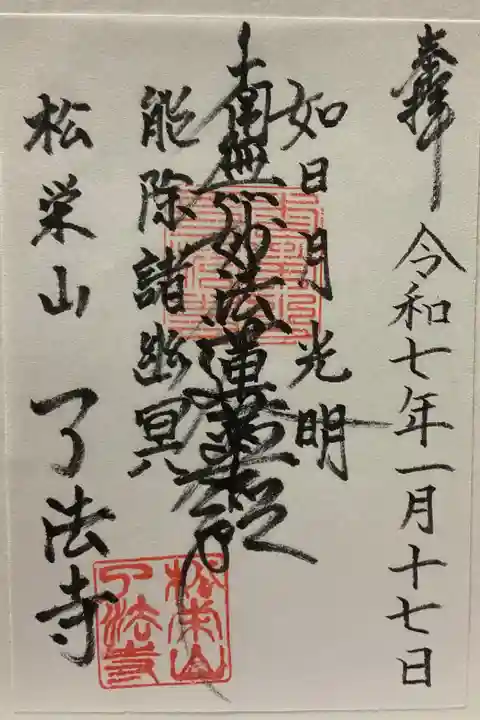 奉拝
令和七年一月十七日
如日月光明
南無妙法蓮華経
能除諸幽冥
松栄山 了法寺
松栄山
了法寺